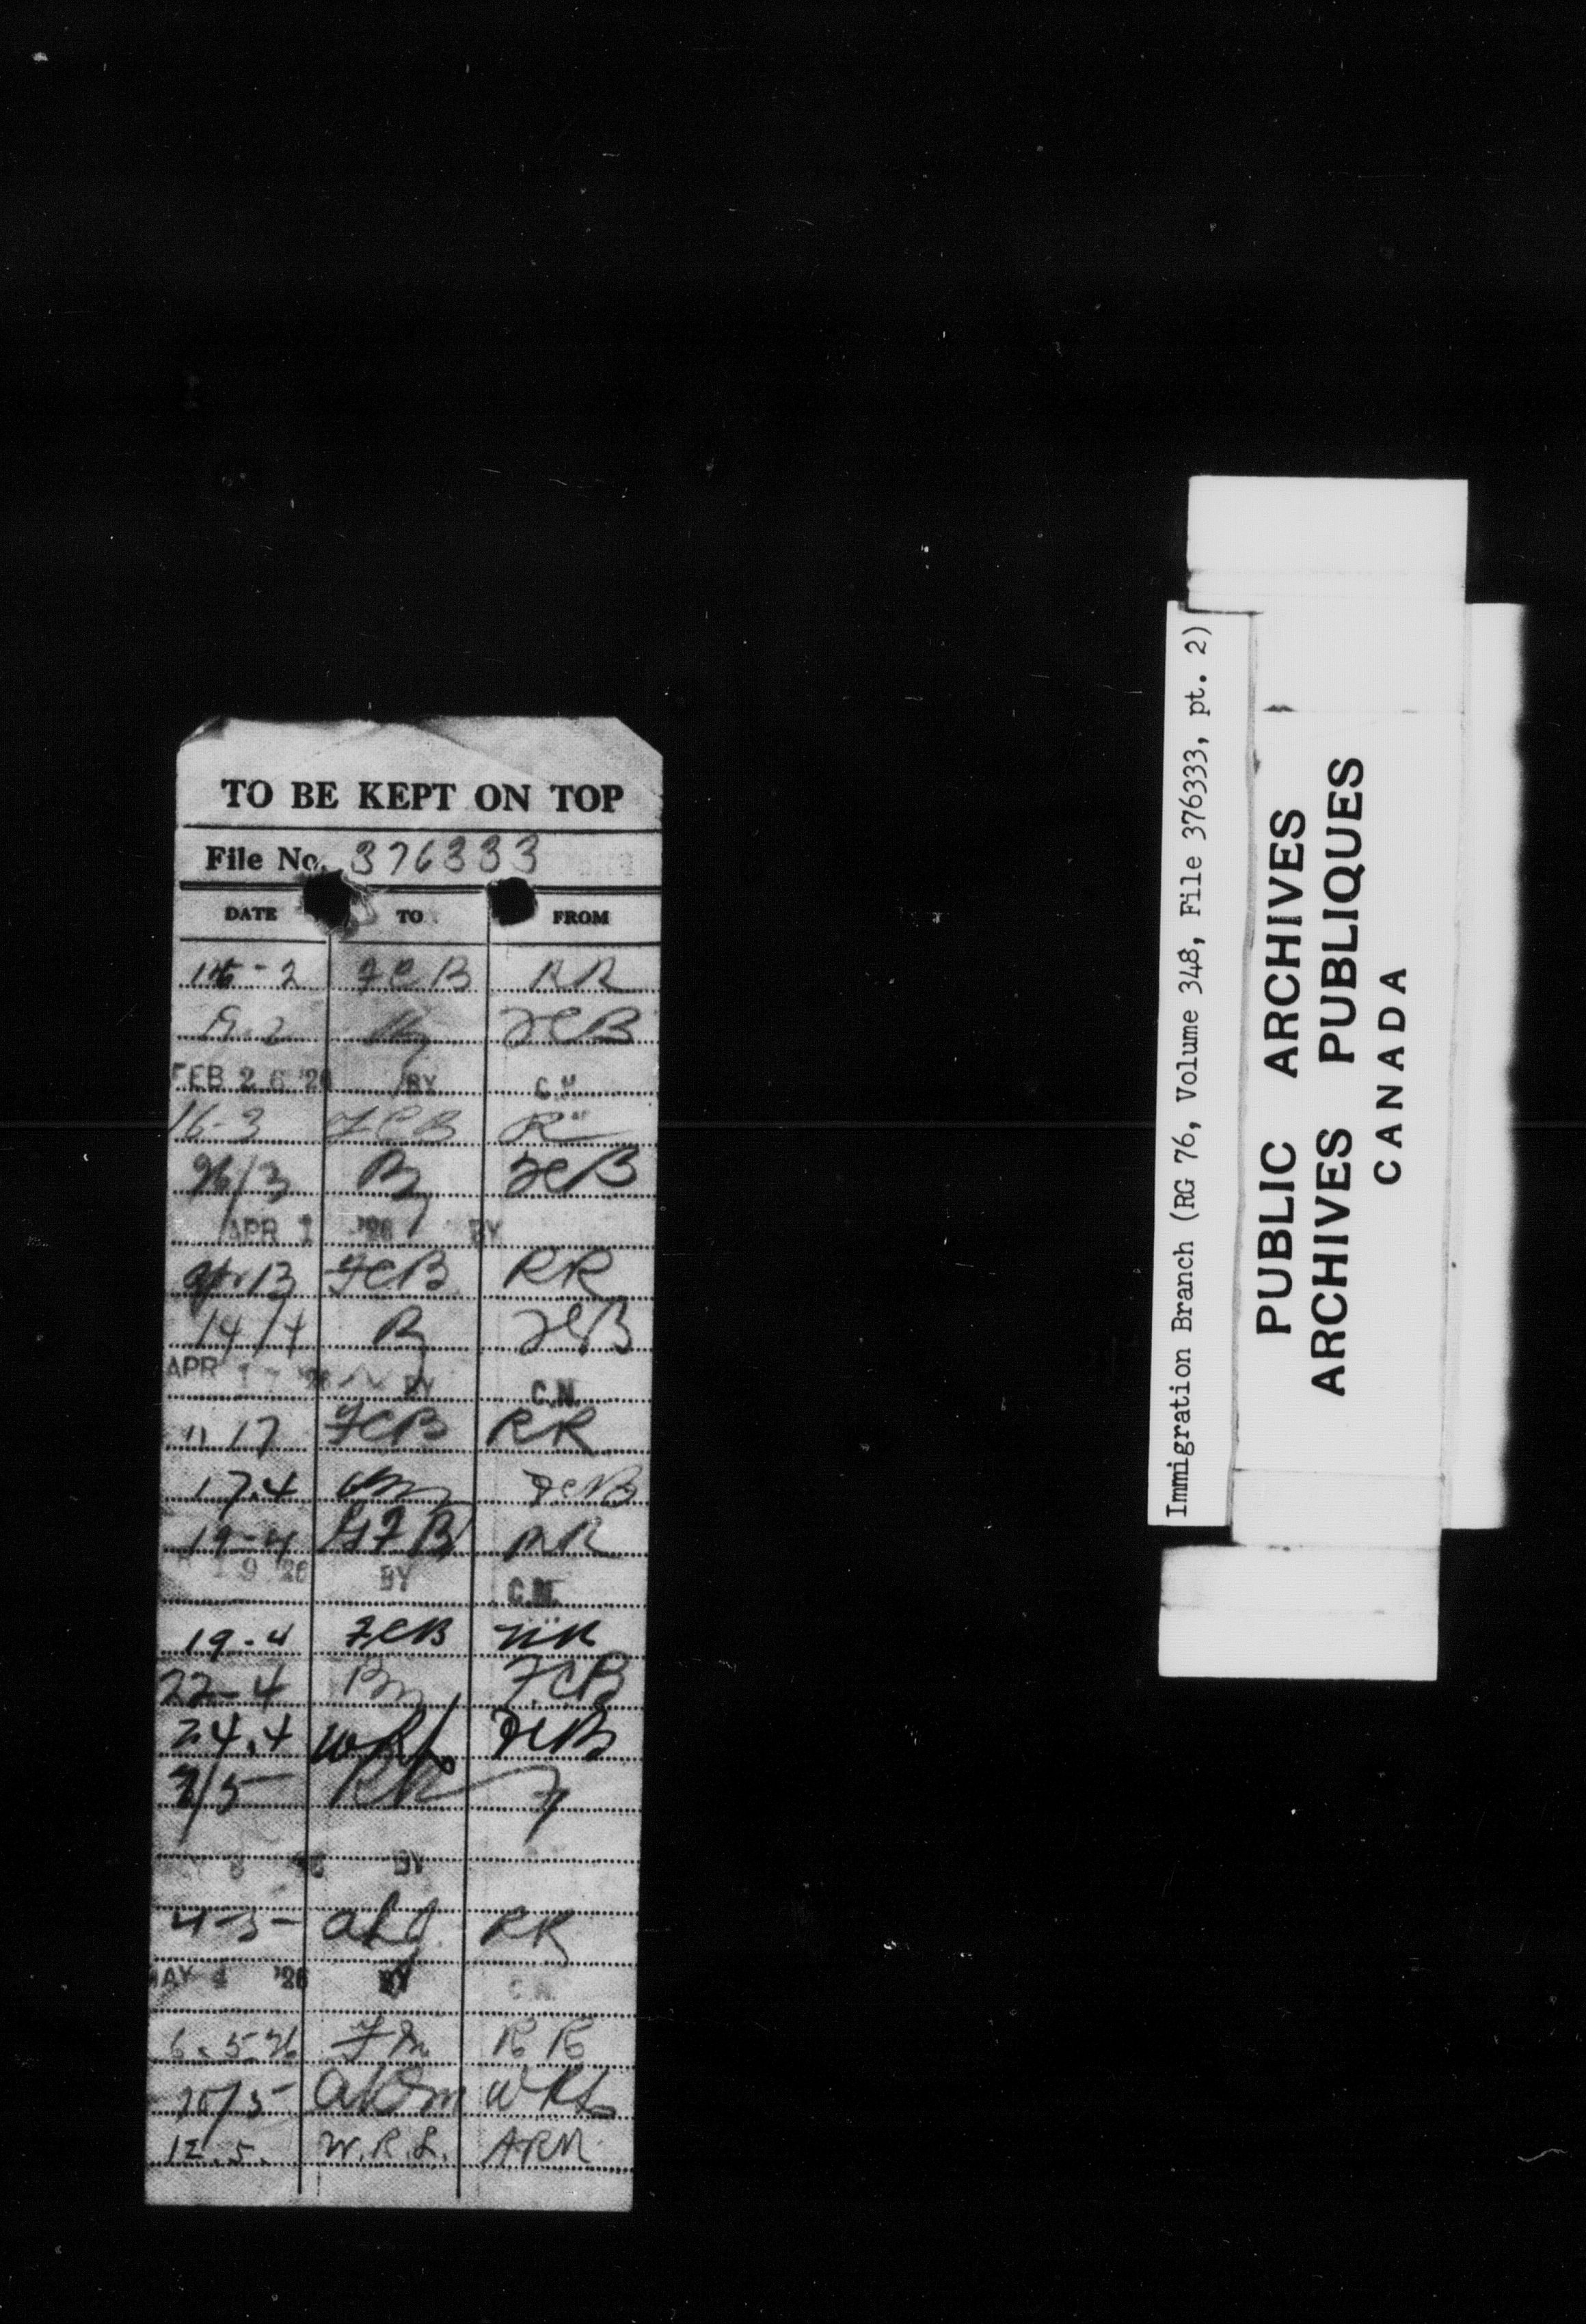 TO BE KEPT ON TOP
File No. 376333
DATE TO FROM
15-2 FCB RR
9.2 FCB
FEB 26 '26 BY C.N.
16-3 FCB R
26/3 By FCB
APR 1 '26 BY
Apr 13 FCB RR
14/4 By FCB
APR 17 '26 BY C.N.
" 17 FCB RR
17.4 FCB
19-4 GFB RR
19 '26 BY C.N.
19-4 FCB RR
22-4 FCB
24.4 WRL FCB
7/5 RR
BY
4-5- RR
MAY 4 '26 BY C.N.
6.5.26 RR
10/5 WRL
12.5. W.R.L. ARM
Immigration Branch (RG 76, Volume 348, File 376333, pt. 2)
PUBLIC ARCHIVES
ARCHIVES PUBLIQUES
CANADA